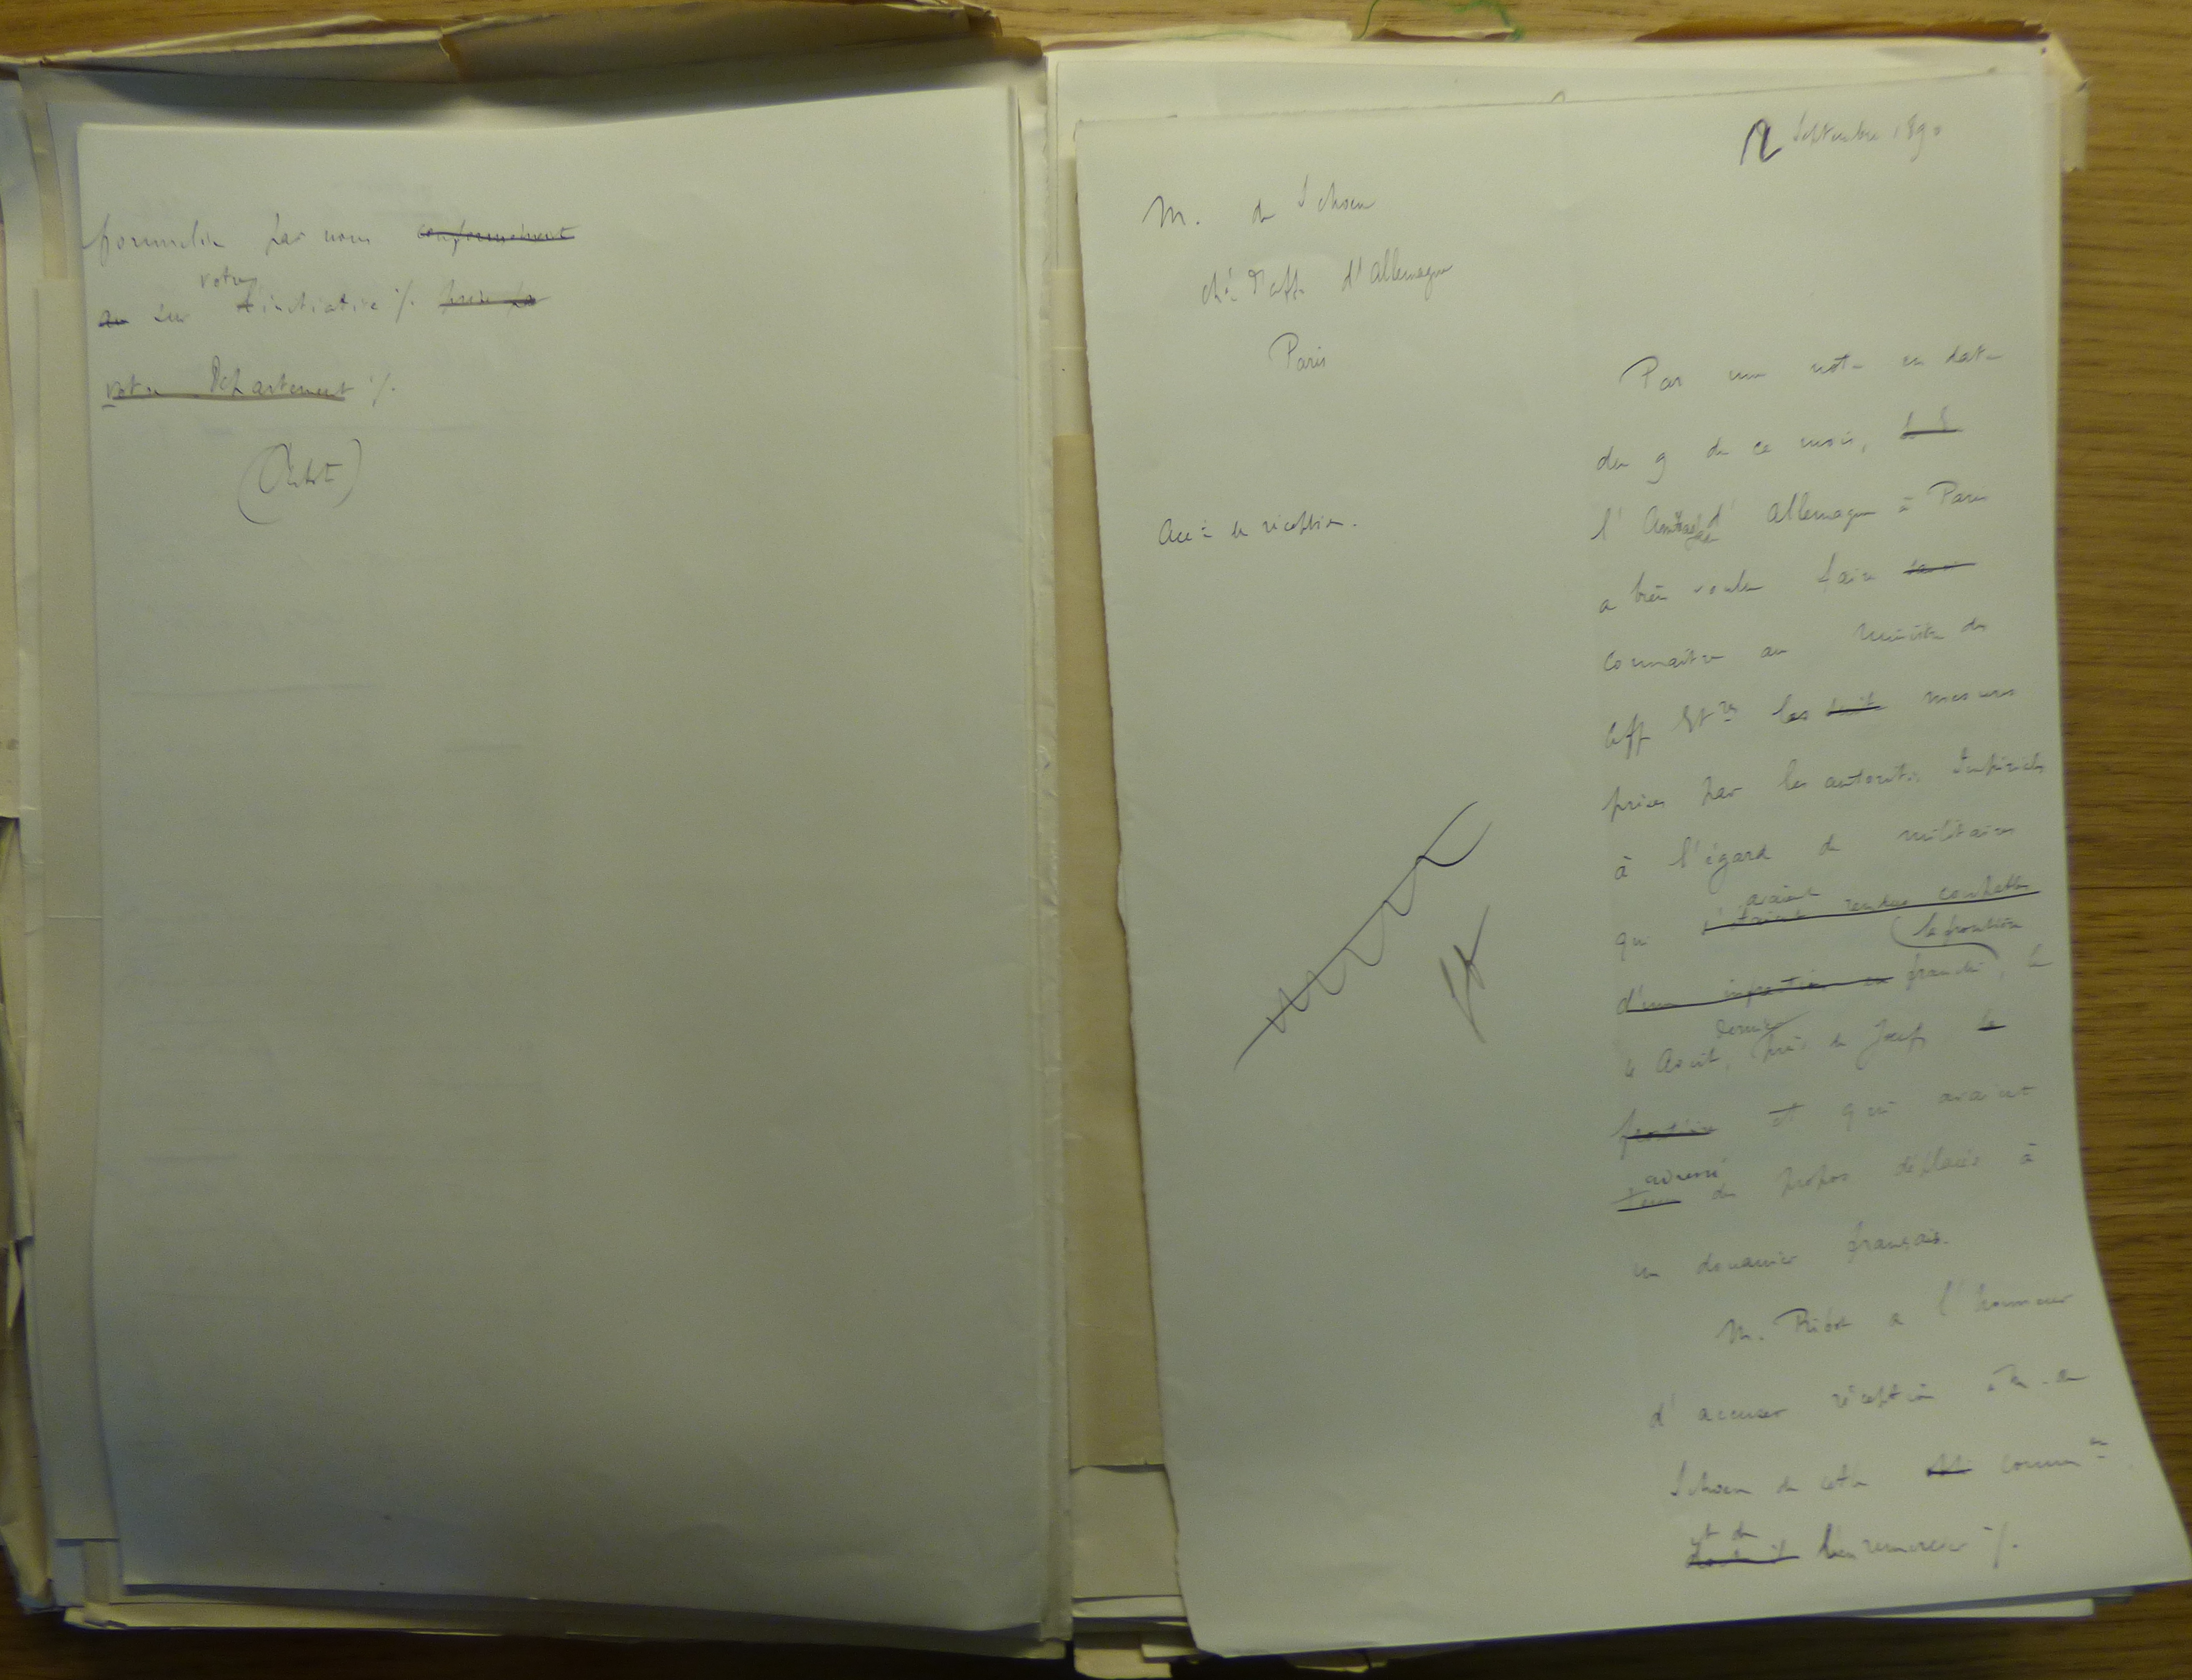 formulée par nous conformément
votre
au sur l'initiative ./.
votre Département ./.
(Ribot)
12 Septembre 1890
M. de Schoen
ch. d'aff. d'Allemagne
Paris
Accé de réception.
Par une note en date
du 9 de ce mois,
l'Ambassade d'Allemagne à Paris
a bien voulu faire
connaître au Ministre des
Aff Etres les mesures
prises par les autorités Impériales
à l'égard de militaires
avaient
qui s'étaient rendus coupables
la frontière
d'une infraction en franchi, le
dernier
4 Août, près de Joeuf, la
frontière et qui avaient
adressé
tenu des propos déplacés à
un douanier français.
M. Ribot a l'honneur
d'accuser réception à M. de
Schoen de cette common
et de
l'en remercier ./.